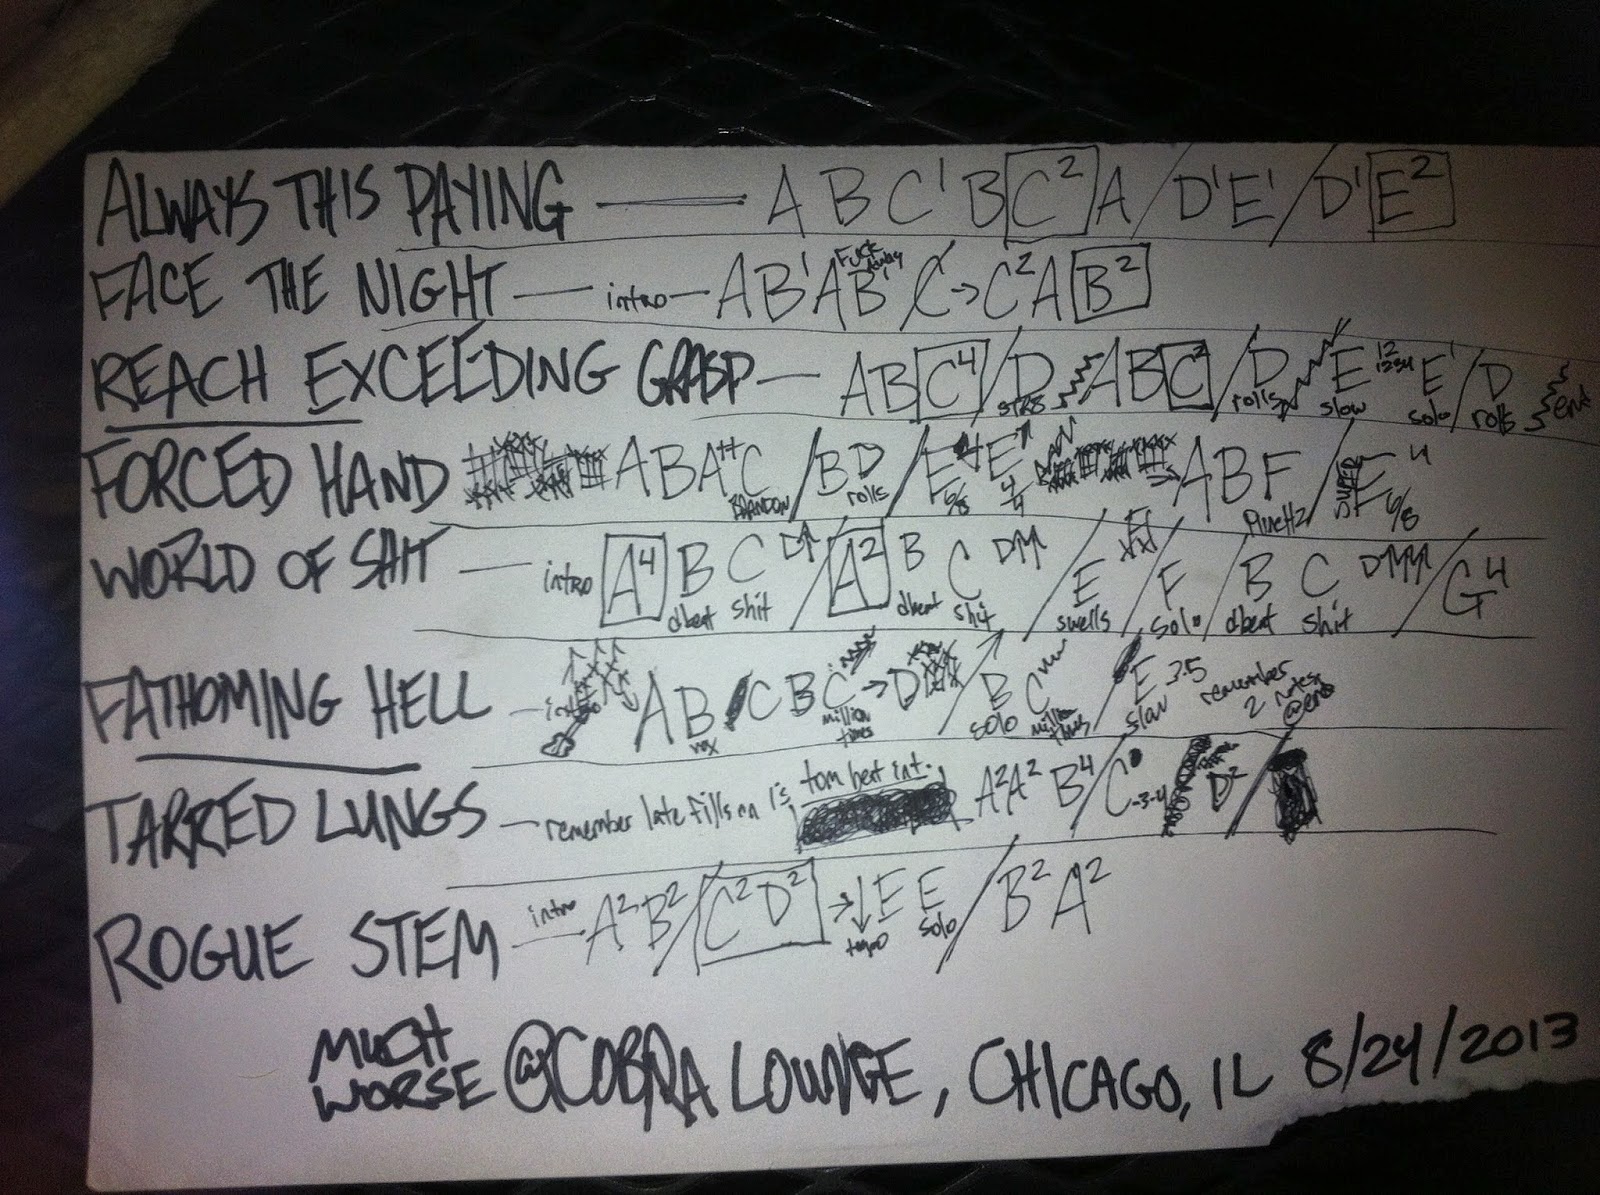 ALWAYS THIS PAYING — A B C¹ B C² A / D¹ E¹ / D¹ E²
FACE THE NIGHT — intro — A B¹ A B¹ FUCK away C → C² A B²
REACH EXCEEDING GRASP — A B C⁴ / D A B C² / D rolls E slow 12 1234 E¹ solo / D rolls end
FORCED HAND A B A++ C BRANDON / B D rolls / E 6/8 E 4/4 A B F / SUPER E⁴ 6/8
WORLD OF SHIT — intro A⁴ B dbeat C shit D↑ / A² B dbeat C shit D↑↑ / E swells / F solo / B dbeat C shit D↑↑↑ / G⁴
FATHOMING HELL — intro A B vox / C B C million times → D / B solo C million times / E slow 3.5 remember 2 notes @ end
TARRED LUNGS — remember late fills on 1's tom beat int. A² A² B⁴ / C -3-4 D² /
ROGUE STEM — intro A² B² / C² D² → ↓ E E solo / B² A²
MUCH WORSE @ COBRA LOUNGE, CHICAGO, IL 8/24/2013